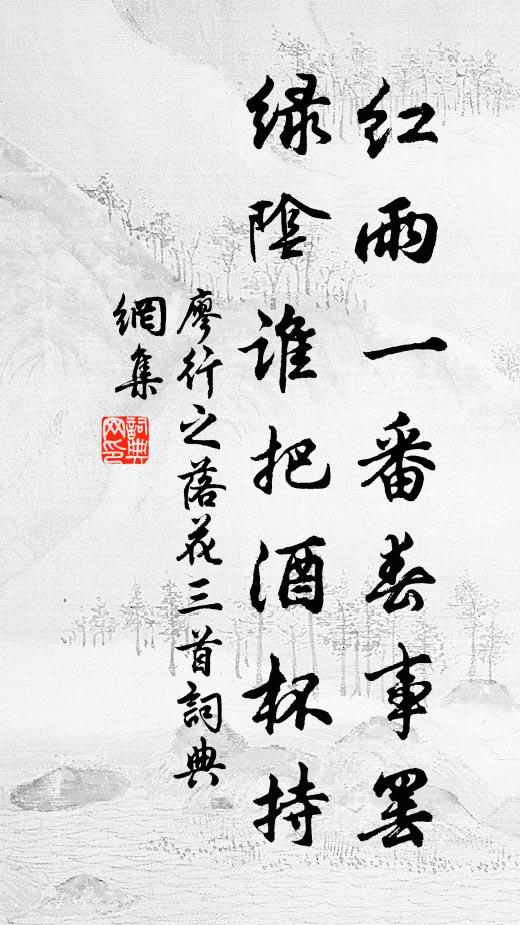 红雨一番春事罢
绿阴谁把酒杯持
廖行之落花三首詞典
網集
詞典網印